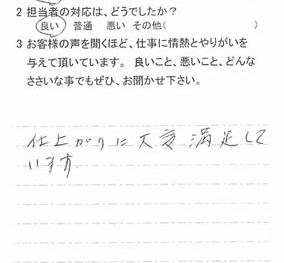 2 担当者の対応は、どうでしたか?
良い 普通 悪い その他( )
3 お客様の声を聞くほど、仕事に情熱とやりがいを
与えて頂いています。 良いこと、悪いこと、どんな
ささいな事でもぜひ、お聞かせ下さい。
仕上がりに大変満足して
います